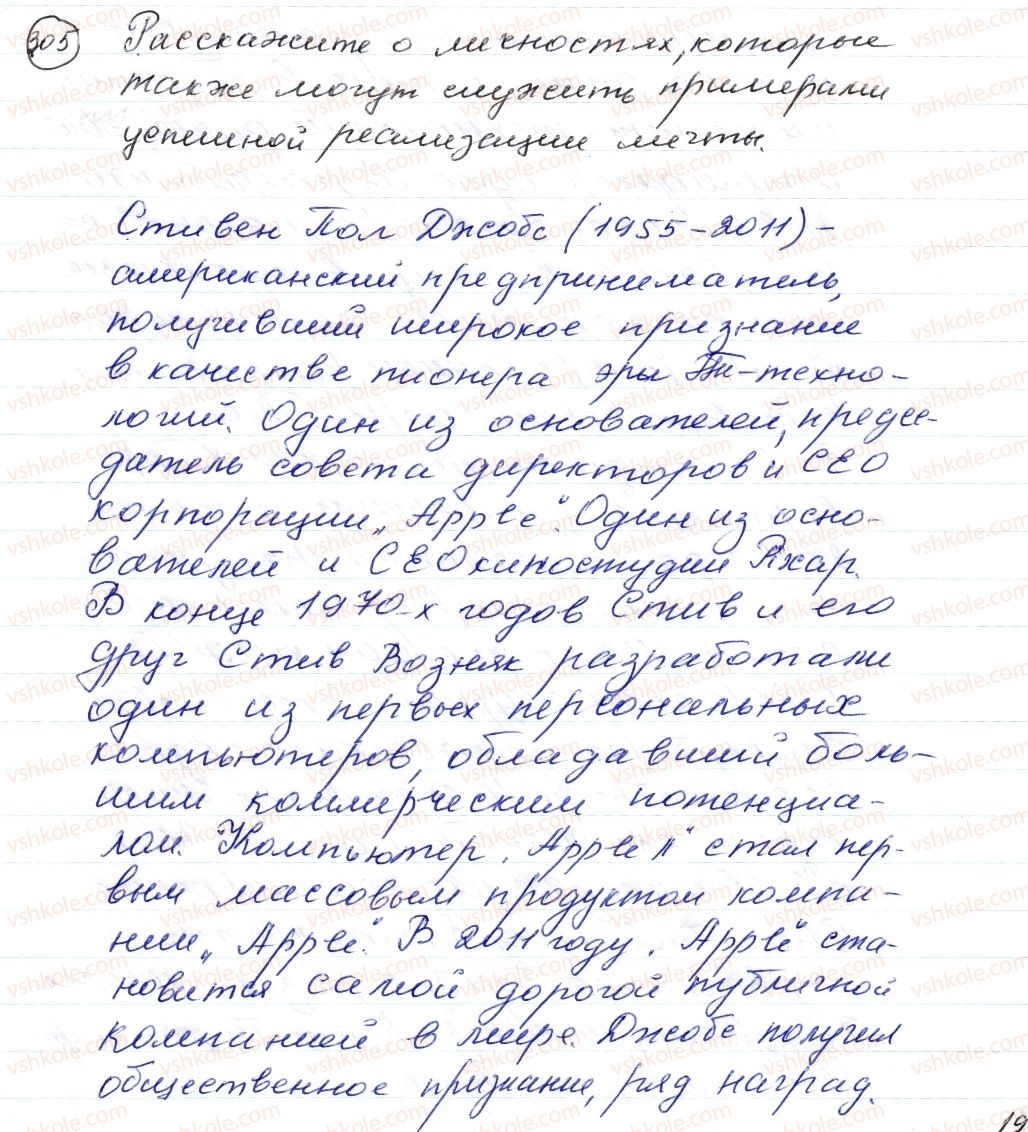 305 Расскажите о личностях, которые
также могут служить примерами
успешной реализации мечты.
Стивен Пол Джобс (1955-2011) -
американский предприниматель,
получивший широкое признание
в качестве пионера эры IT-техно-
логий. Один из основателей, предсе-
датель совета директоров и CEO
корпорации „Apple". Один из осно-
вателей и CEO киностудии Pixar.
В конце 1970-х годов Стив и его
друг Стив Возняк разработали
один из первых персональных
компьютеров, обладавший боль-
шим коммерческим потенциа-
лом. Компьютер „Apple II" стал пер-
вым массовым продуктом компа-
нии „Apple". В 2011 году „Apple" ста-
новится самой дорогой публичной
компанией в мире. Джобс получил
общественное признание, ряд наград.
19
vshkole.com